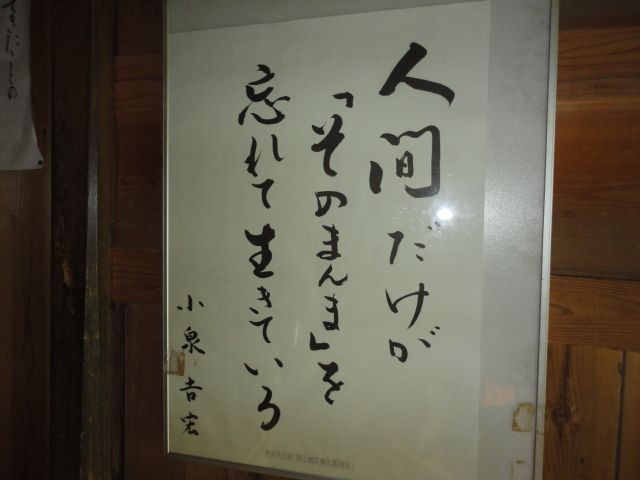 人間だけが
「そのまんま」を
忘れて生きている
小泉吉宏